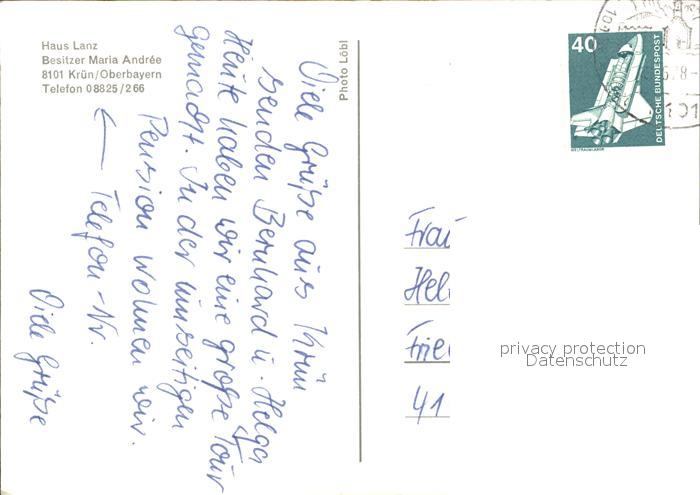 Haus Lanz
Besitzer Maria Andrée
8101 Krün/Oberbayern
Telefon 08825/266
Photo Löbl
Viele Grüße aus Krün
senden Bernhard u. Helga
Heute haben wir eine große Tour
gemacht. In der umseitigen
Pension wohnen wir.
← Telefon-Nr.
Viele Grüße
40
DEUTSCHE BUNDESPOST
WELTRAUMLABOR
Frau
Hel
Frie
41
privacy protection
Datenschutz